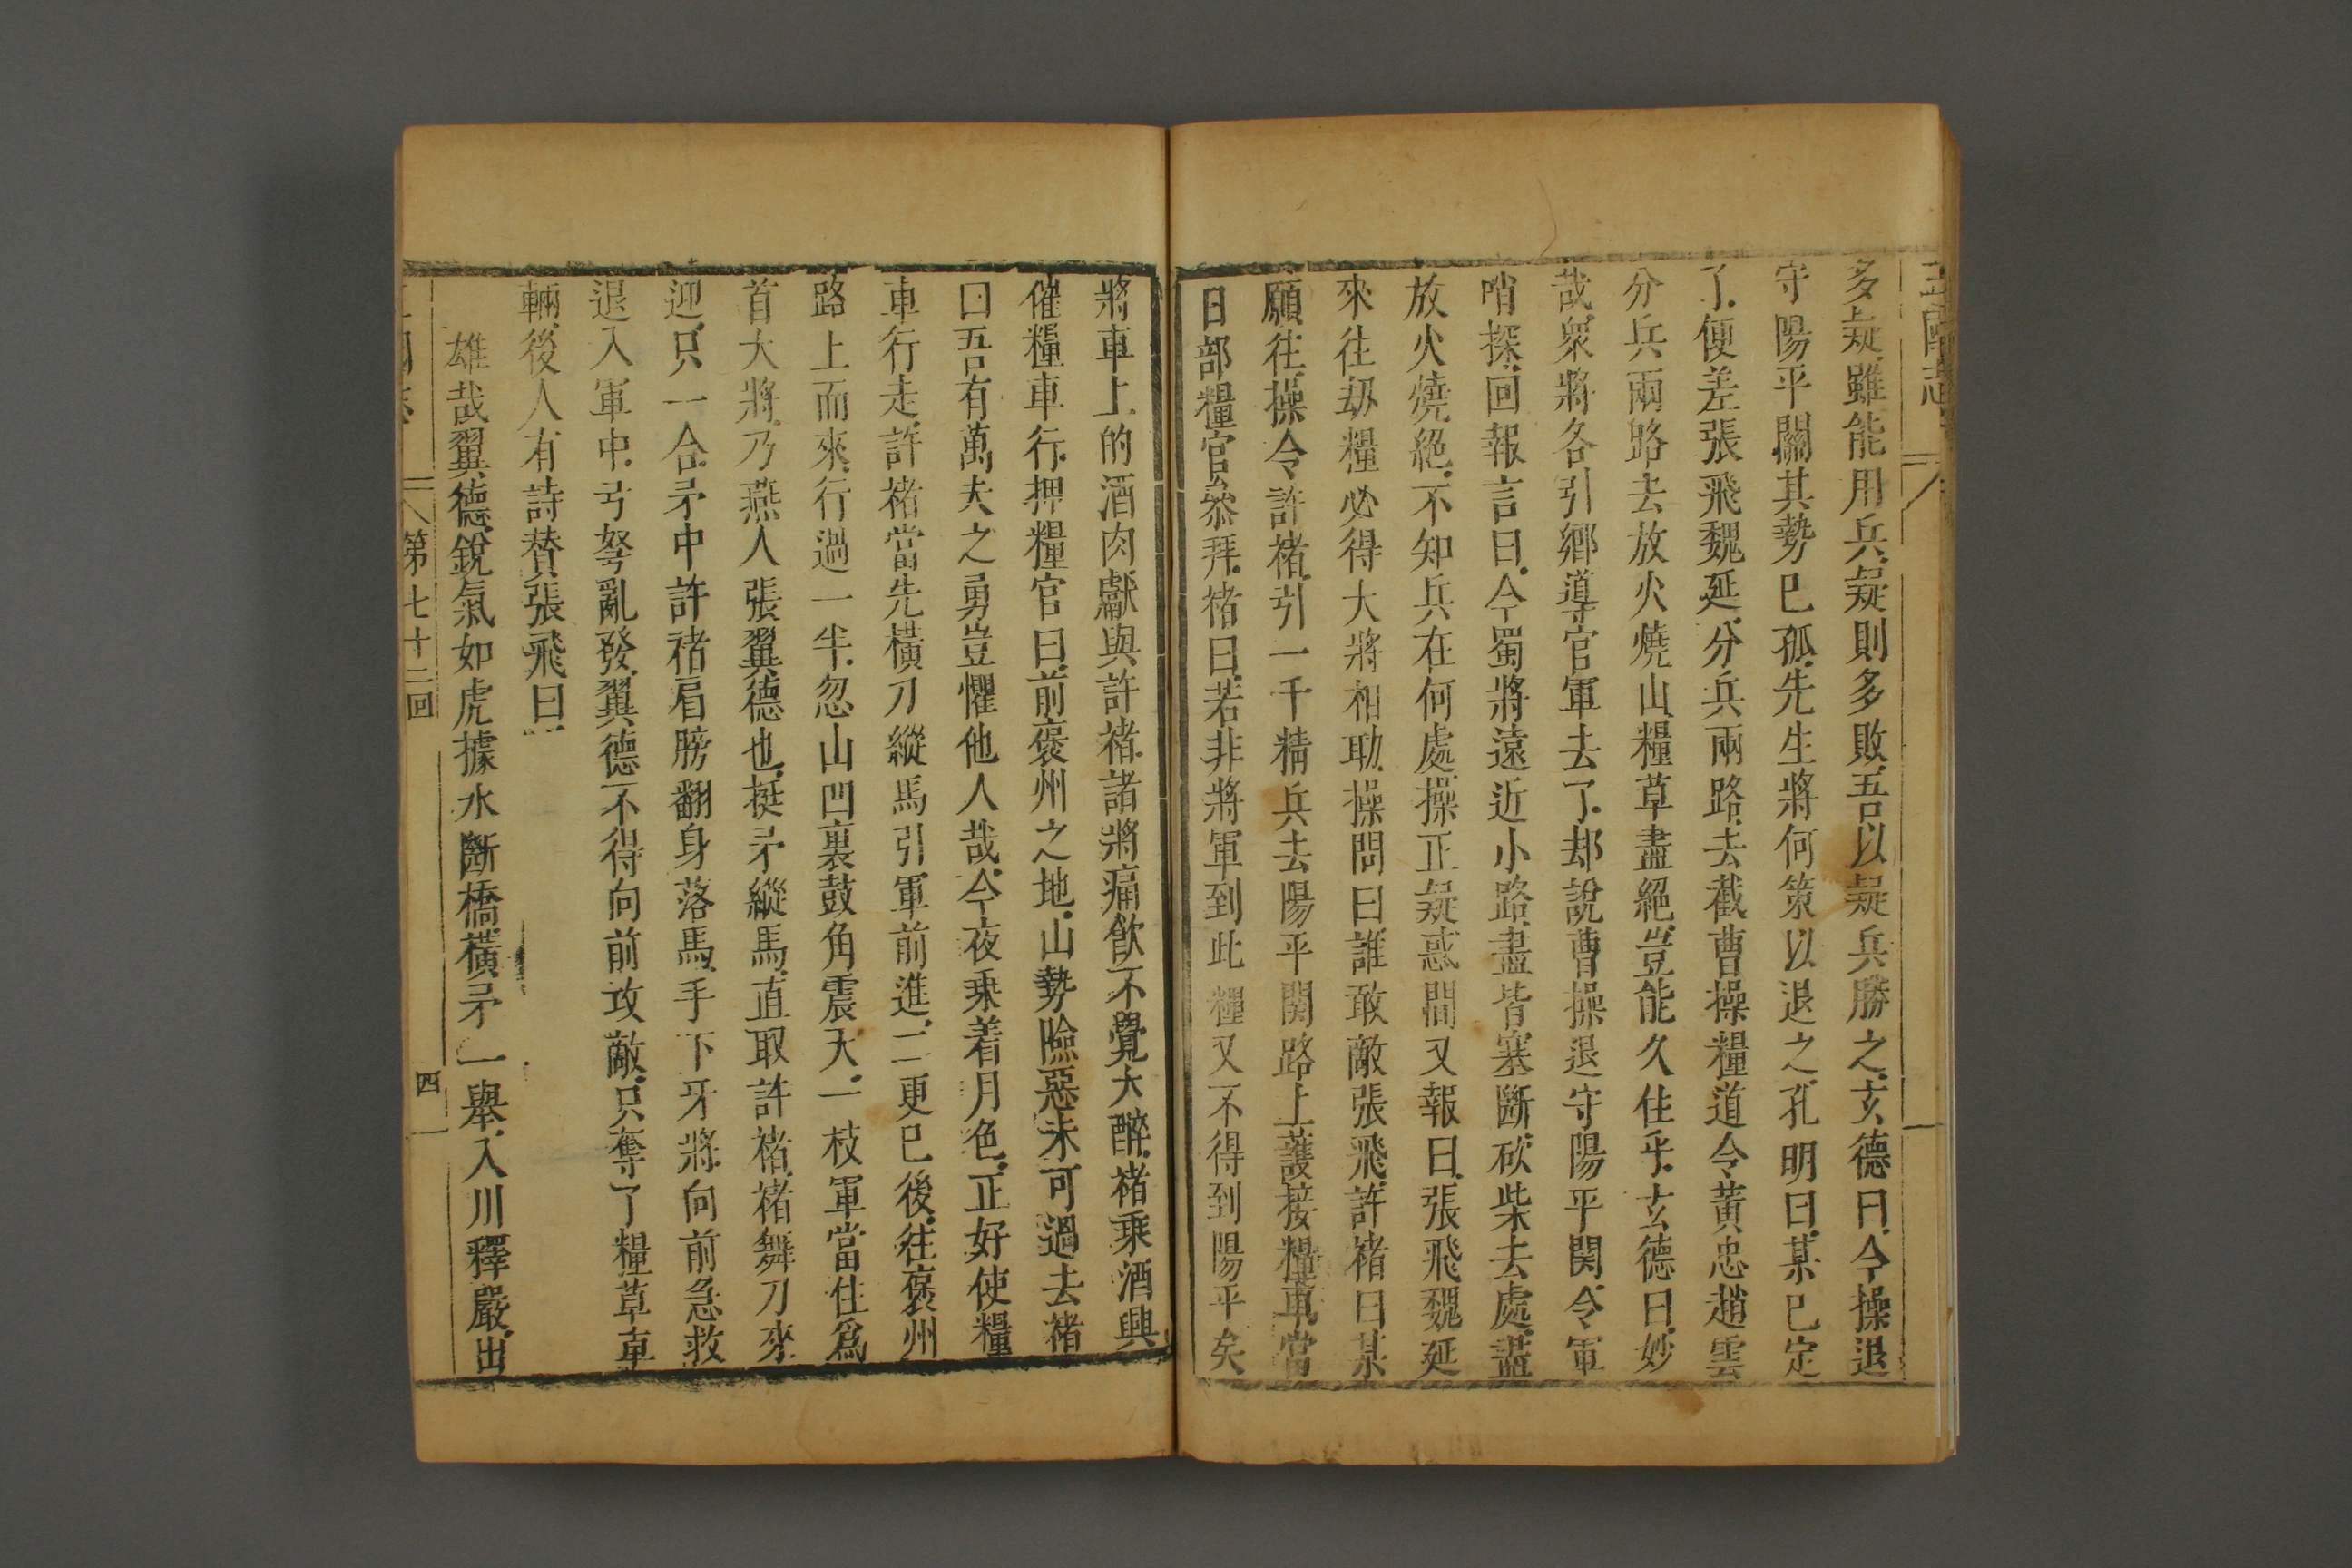 多疑雖能用兵疑則多敗吾以疑兵勝之玄德曰今操退
守陽平關其勢已孤先生將何策以退之孔明曰某已定
了便差張飛魏延分兵兩路去截曹操糧道令黃忠趙雲
分兵兩路去放火燒山糧草盡絕豈能久住乎玄德曰妙
哉衆將各引鄉導官軍去了却說曹操退守陽平関令軍
哨探回報言曰今蜀將遠近小路盡皆塞斷砍柴去處盡
放火燒絕不知兵在何處操正疑惑間又報曰張飛魏延
來往刼糧必得大將相助操問曰誰敢敵張飛許褚曰某
願往操令許褚引一千精兵去陽平関路上護接糧車當
日部糧官叅拜褚曰若非將軍到此糧又不得到陽平矣
將車上的酒肉獻與許褚諸將痛飲不覺大醉褚乘酒興
催糧車行押糧官曰前褒州之地山勢險惡未可過去褚
曰吾有萬夫之勇豈懼他人哉今夜乘着月色正好使糧
車行走許褚當先橫刀縱馬引軍前進二更已後往褒州
路上而來行過一半忽山凹裏鼓角震天一枝軍當住爲
首大將乃燕人張翼德也挺矛縱馬直取許褚褚舞刀來
迎只一合矛中許褚肩膀翻身落馬手下牙將向前急救
退入軍中弓弩亂發翼德不得向前攻敵只奪了糧草車
輛後人有詩賛張飛曰
雄哉翼德銳氣如虎據水斷橋橫矛一舉入川釋嚴出
第七十二回
四